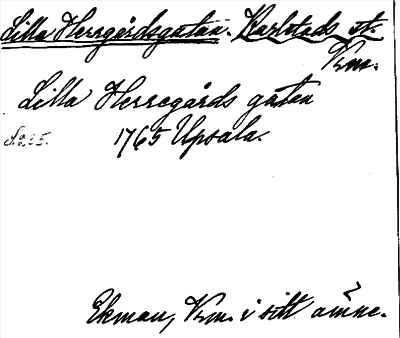 Lilla Herrgårdsgatan. Karlstads st.
Vrm.
Lilla Herregårds gatan
S. 255. 1765 Upsala.
Ekman, Vrm. i sitt ämne.